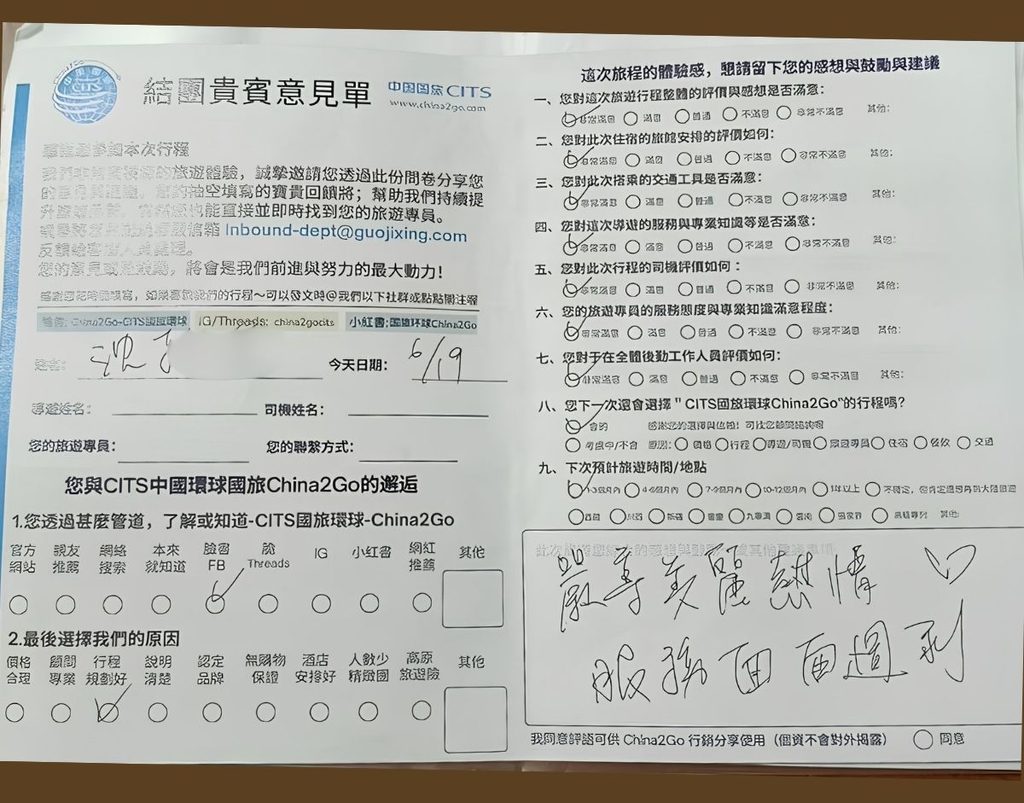 CITS
結團貴賓意見單
中国国旅 CITS
www.china2go.com
本次行程
旅遊體驗，誠摯邀請您透過此份問卷分享您
抽空填寫的寶貴回饋將；幫助我們持續提
也能直接並即時找到您的旅遊專員。
信箱 Inbound-dept@guojixing.com
將會是我們前進與努力的最大動力！
我們的行程～可以發文時@我們以下社群或點點關注喔
China2Go-CITS國旅環球 IG/Threads: china2gocits 小紅書:国旅环球China2Go
姓名： 沈
今天日期： 6/19
導遊姓名： 司機姓名：
您的旅遊專員： 您的聯繫方式：
您與CITS中國環球國旅China2Go的邂逅
1.您透過甚麼管道，了解或知道-CITS國旅環球-China2Go
官方網站 親友推薦 網絡搜索 本來就知道 臉書FB 脆Threads IG 小红書 網紅推薦 其他
2.最後選擇我們的原因
價格合理 顧問專業 行程規劃好 說明清楚 認定品牌 無購物保證 酒店安排好 人數少精緻團 高原旅遊險 其他
這次旅程的體驗感，懇請留下您的感想與鼓勵與建議
一、您對這次旅遊行程整體的評價與感想是否滿意：
非常滿意 滿意 普通 不滿意 非常不滿意 其他：
二、您對此次住宿的旅館安排的評價如何：
非常滿意 滿意 普通 不滿意 非常不滿意 其他：
三、您對此次搭乘的交通工具是否滿意：
非常滿意 滿意 普通 不滿意 非常不滿意 其他：
四、您對這次導遊的服務與專業知識等是否滿意：
非常滿意 滿意 普通 不滿意 非常不滿意 其他：
五、您對此次行程的司機評價如何：
非常滿意 滿意 普通 不滿意 非常不滿意 其他：
六、您的旅遊專員的服務態度與專業知識滿意程度：
非常滿意 滿意 普通 不滿意 非常不滿意 其他：
七、您對于在全體後勤工作人員評價如何：
非常滿意 滿意 普通 不滿意 非常不滿意 其他：
八、您下一次還會選擇 " CITS國旅環球China2Go"的行程嗎?
會的
考慮中/不會 原因： 價格 行程 導遊/司機 旅遊專員 住宿 餐飲 交通
九、下次預計旅遊時間/地點
1-3個月內 4-6個月內 7-9個月內 10-12個月內 1年以上
西藏 新疆 九寨溝 張家界 其他:
嚴導美麗熱情
服務面面週到
我同意評語可供 China2Go 行銷分享使用（個資不會對外揭露） 同意